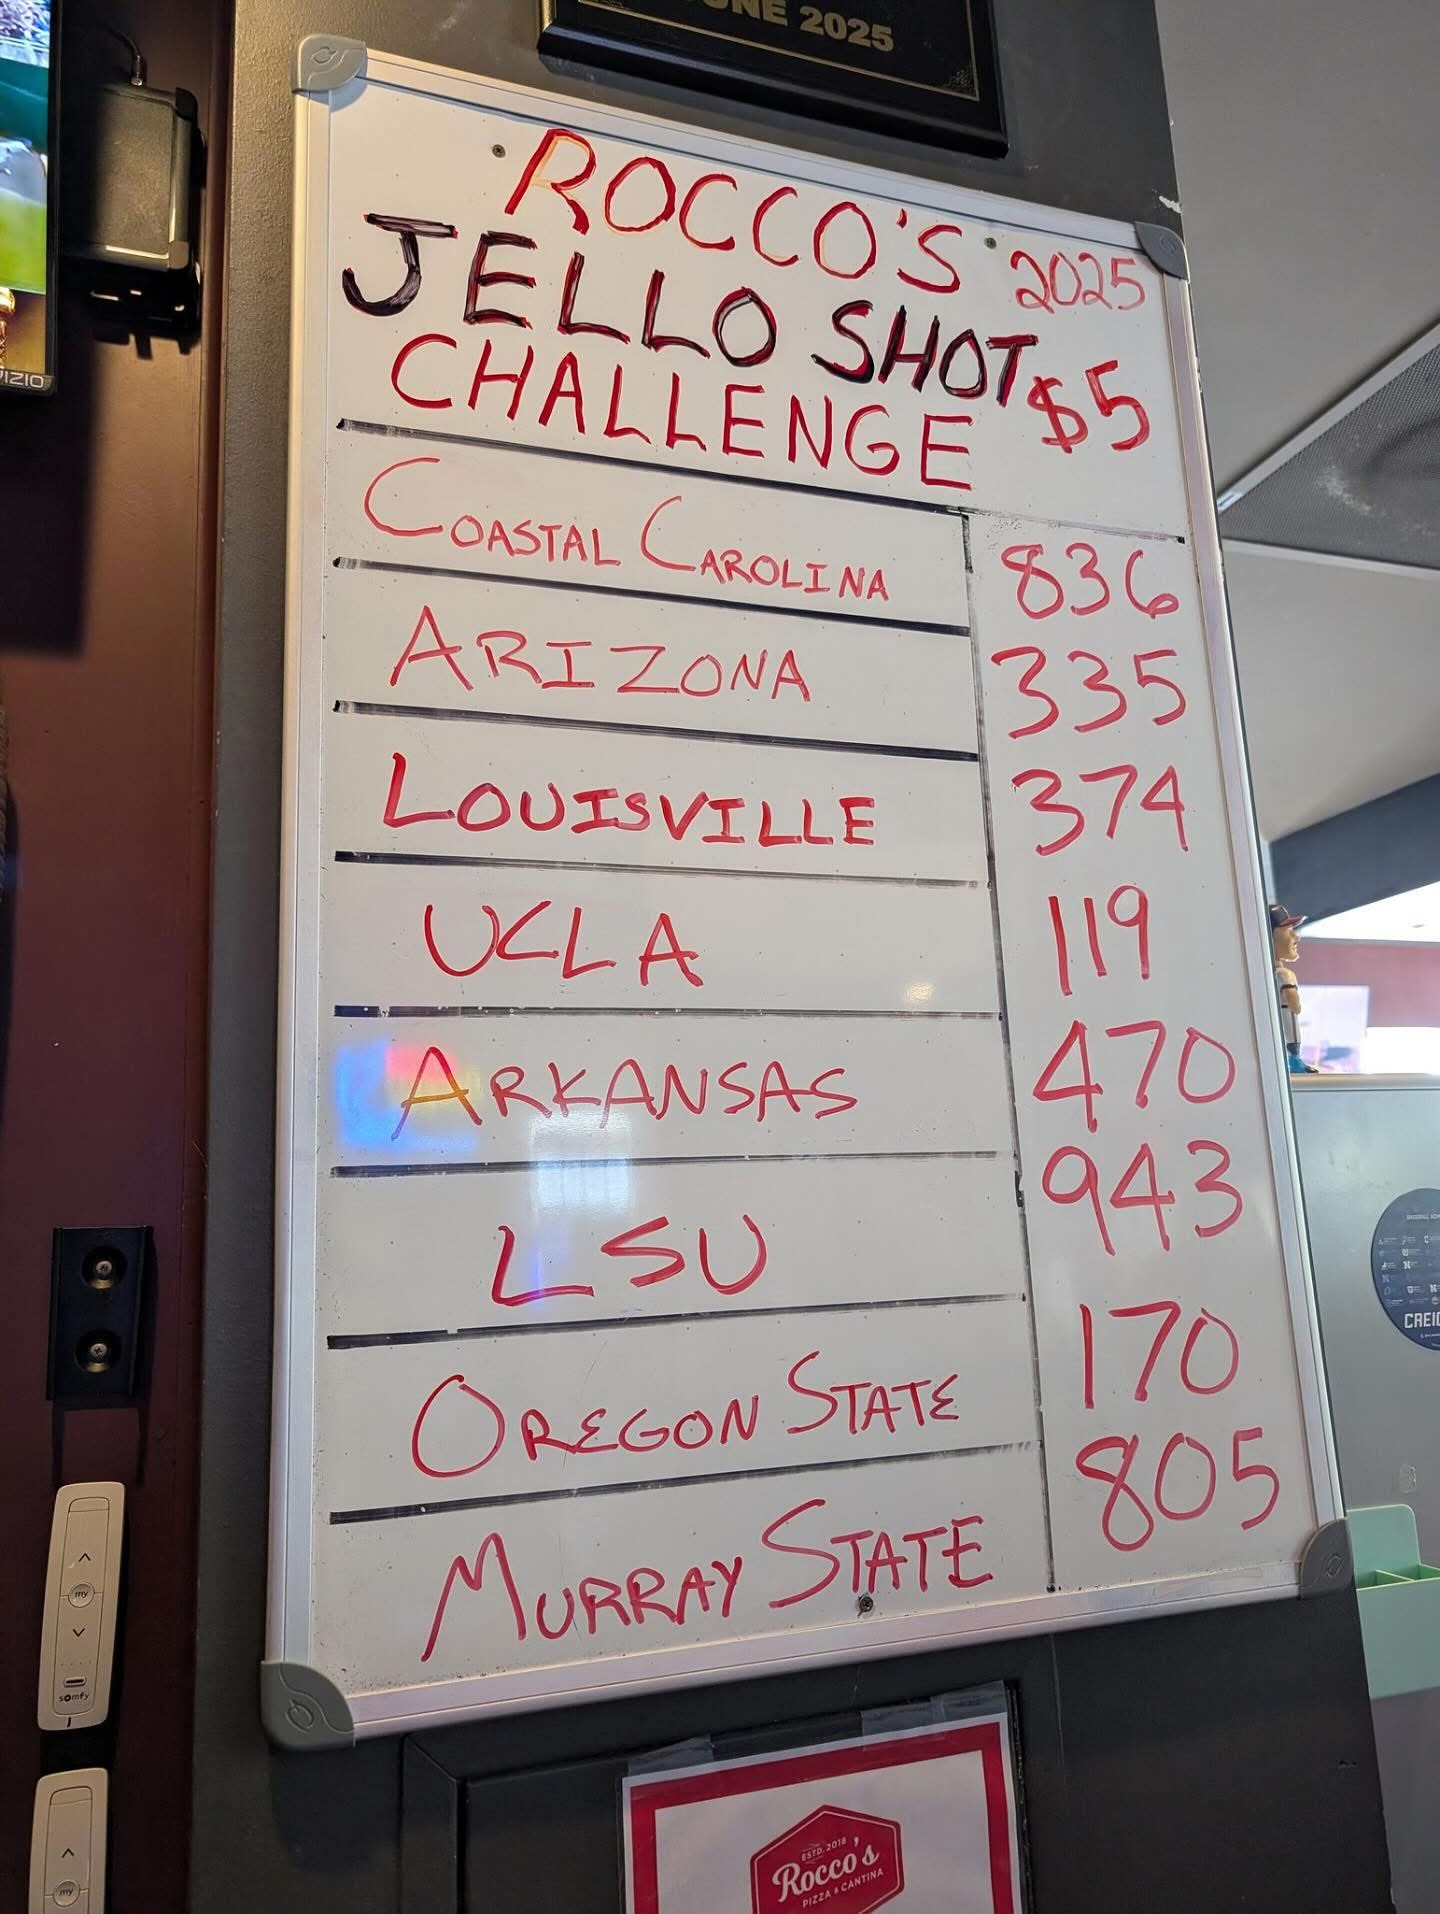 JUNE 2025
ROCCO'S 2025
JELLO SHOT
CHALLENGE $5
COASTAL CAROLINA 836
ARIZONA 335
LOUISVILLE 374
UCLA 119
ARKANSAS 470
LSU 943
OREGON STATE 170
MURRAY STATE 805
VIZIO
my
somfy
my
ESTD. 2018
Rocco's
PIZZA & CANTINA